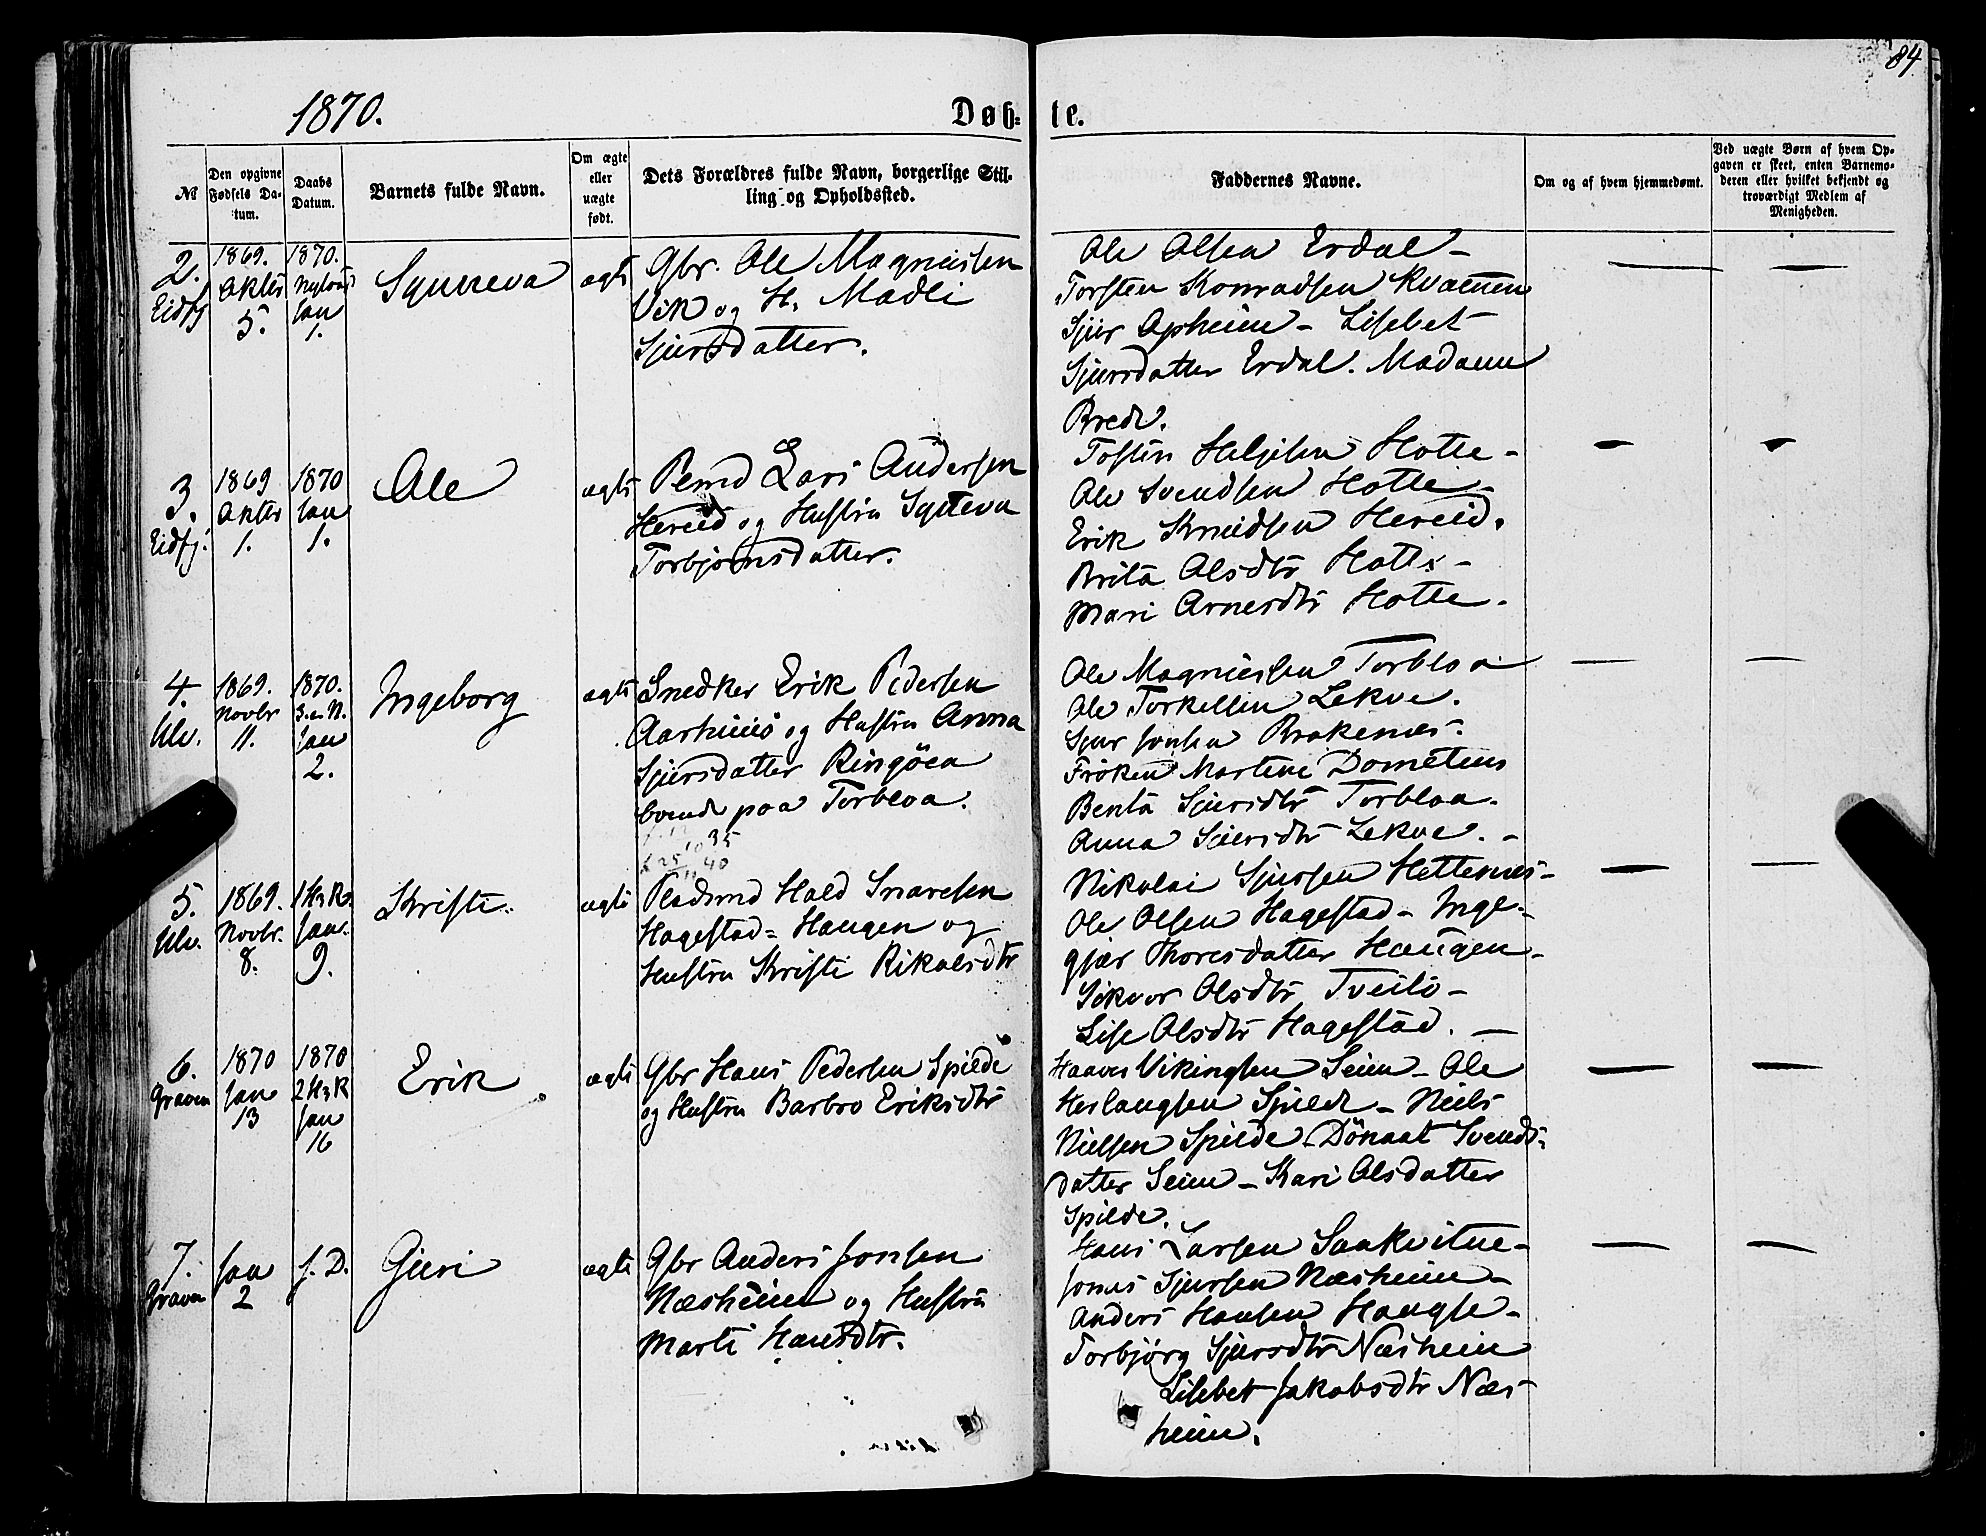 84
1870.
Døb- te.
№
Den opgivne Fødsels Datum.
Daabs Datum.
Barnets fulde Navn.
Om ægte eller uægte født.
Dets Forældres fulde Navn, borgerlige Stilling og Opholdssted.
Faddernes Navne.
Om og af hvem hjemmedømt.
Ved uægte Børn af hvem Opgaven er skeet, enten Barnemoderen eller hvilket bekjendt og troværdigt Medlem af Menigheden.
2. Eidfj
1869. Oktbr 5.
1870. Nytaarsd Jan 1.
Synneva
ægte
Gbr. Ole Magnussen
Vik og H. Madli
Sjursdatter.
Ole Olsen Erdal -
Torsten Konradsen Kvamen
Sjur Opheim - Lisebet
Sjursdatter Erdal. Madame
Brede.
3. Eidfj.
1869 Oktbr 1.
1870 Jan 1.
Ole
ægte
Lars Andersen
Hereid og Hustru Synneva
Torbjørnsdatter.
Tosten Heljesen Hotle -
Ole Svendsen Hotle -
Erik Knudsen Hereid.
Brita Olsdtr Hotle -
Mari Arnesdtr Hotle.
4. Ulv.
1869. Novbr 11.
1870. S. e. N. Jan 2.
Ingeborg
ægte
Snedker Erik Pedersen
Aarhuus og Hustru Anna
Sjursdatter Ringöen
boende paa Torbloa.
35
40
Ole Magnussen Torbloa
Ole Torkelsen Lekve.
Sjur Jonsen Brakenes.
Fröken Martine
Benta Sjursdtr Torbloa.
Anna Sjursdtr Lekve. -
5. Ulv.
1869. Novbr. 8.
Jan. 9.
Kristi.
ægte
Pladsmd Snaresen
Hagestad = Haugen og
Hustru Kristi Rikolsdtr
Nikolai Sjursen Hellenes -
Ole Olsen Hagestad - Inge-
gjær Thoresdatter Haugen -
Olsdtr Tveito -
Lise Olsdtr Hagestad. -
6. Graven
1870 Jan 13
1870 Jan 16
Erik
ægte
Gbr Hans Pedersen Spilde
og Hustru Barbro Eriksdtr
Haaver Vikingsen Seim - Ole
Herlaugsen Spilde - Niels
Nielsen Spilde - Svends-
datter Seim - Kari Olsdatter
Spilde.
7. Graven
Jan 2
s. D.
Guri
ægte
Gbr Anders Jonsen
Næsheim og Hustru
Marti Hansdtr.
Hans Larsen Saakvitne -
Jonas Sjursen Næsheim -
Anders Hansen Haugse -
Torbjørg Sjursdtr Næsheim
Lisbet Jakobsdtr Næs-
heim.